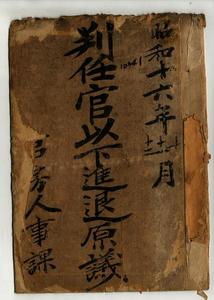 昭和十六年 月
判任官以下進退原議
官房人事課